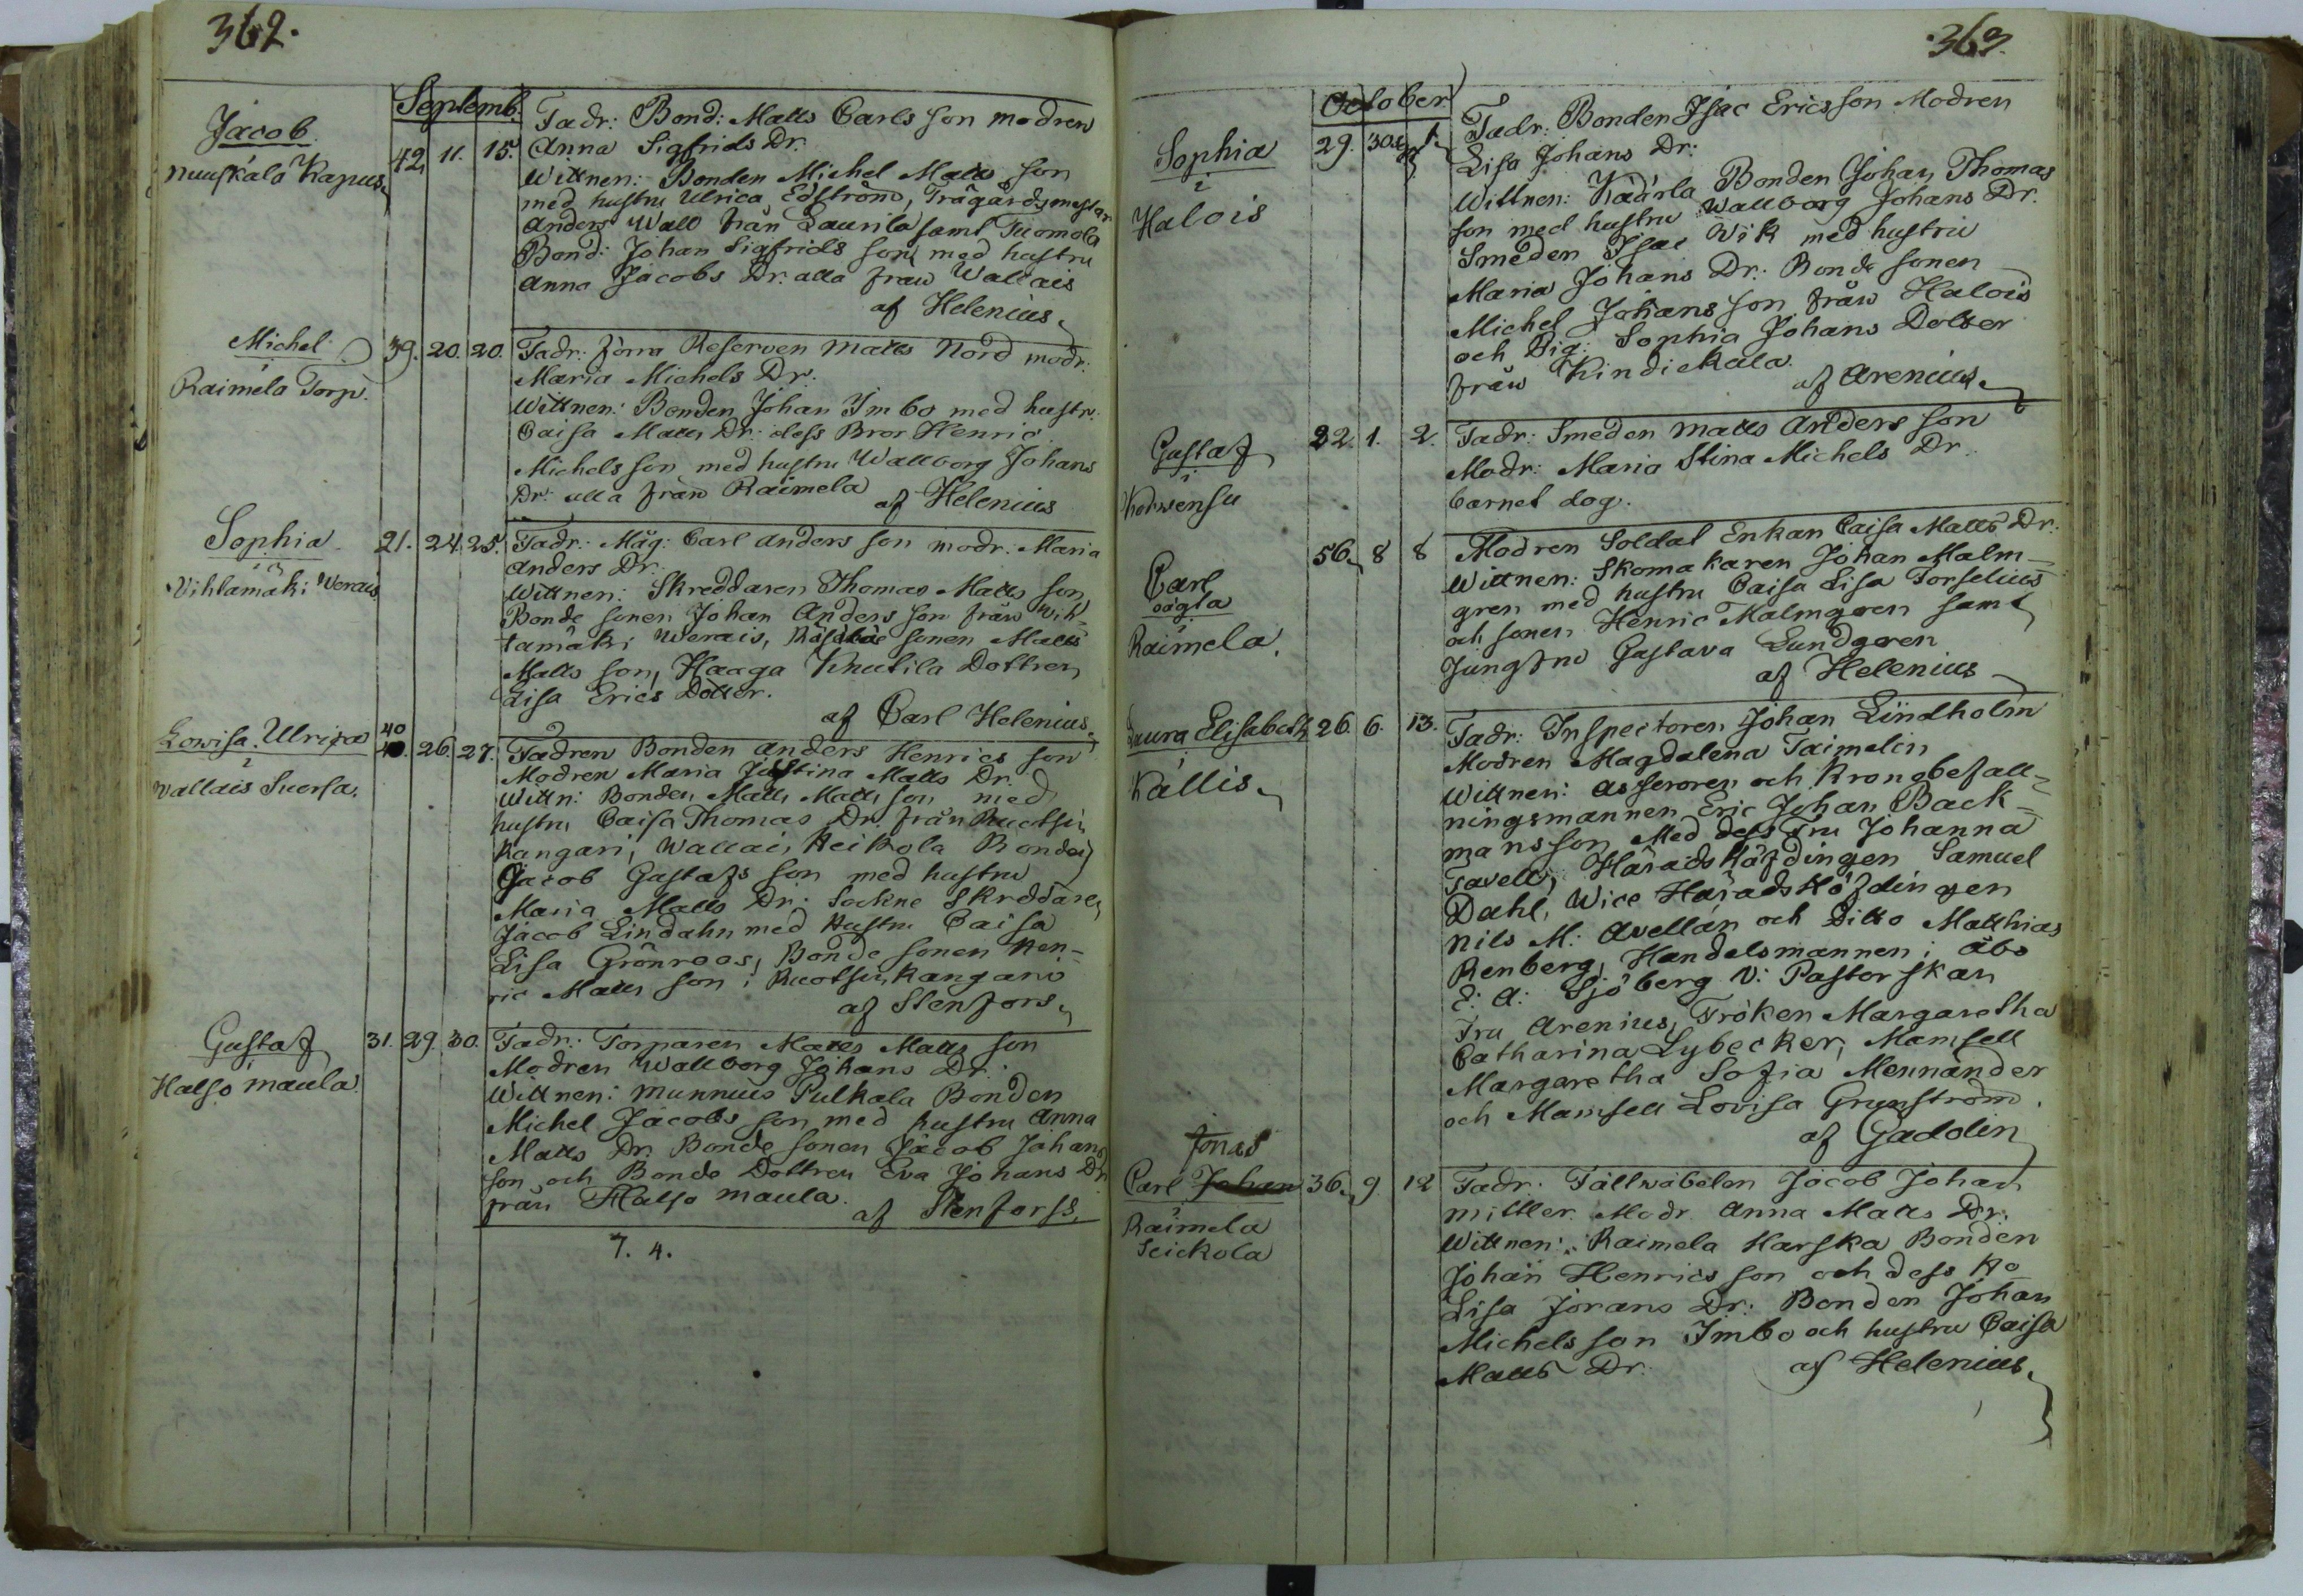 362.
Septemb.
Jacob
Nuuskálo Kapus
42 11. 15.
Fadr: Bond: Matts Carls son modren
Anna Sigfrids Dr.
Wittnen: Bonden Michel Matts son
med hustru Ulrica Edström, Trägårdsmestar
Anders Wall från Laurila samt Tuomola
Bond: Johan Sigfrids son med hustru
Anna Jacobs Dr. alla från Wallais
af Helenius
Michel
i
Raimela Torp.
39. 20. 20.
Fadr: förra Reserven Matts Nord modr:
Maria Michels Dr.
Wittnen: Bonden Johan Imbo med hustr.
Caisa Matts Dr. dess Bror Henric
Michels son med hustru Wallborg Johans
Dr. alla från Raimela
af Helenius
Sophia
i
Vihtamäki Werais
21. 24. 25.
Fadr: Måg: Carl Anders son modr: Maria
Anders Dr.
Wittnen: Skreddaren Thomas Matts son
Bonde sonen Johan Anders son från Wih-
tamäki Werais, sonen Matts
Matts son, Haaga Knutila Dottren
Lisa Erics Dotter.
af Carl Helenius
Lowisa Ulrica
i
Wallais Suorsa.
40
40. 26. 27.
Fadren Bonden Anders Henrics son
Modren Maria Justina Matts Dr.
Wittn: Bonden Matts Matts son med
hustru Caisa Thomas Dr. från Ruotsin
Kangari, Wallai, Heikola Bonden
Jacob Gustafs son med hustru
Maria Matts Dr. Sockne Skreddaren
Jacob Lindahn med Hustru Caisa
Lisa Grönroos, Bonde sonen Hen-
ric Matts son i Ruotsinkangano
af Stenfors
Gustaf
i
Halso maula
31. 29. 30.
Fadr: Torparen Matts Matts son
Modren Wallborg Johans Dr.
Wittnen: Munnuis Pulkala Bonden
Michel Jacobs son med hustru Anna
Matts Dr. Bonde sonen Jacob Johans
son och Bonde Dottren Eva Johans Dr
från Halso maula.
af Stenforss.
7. 4.
363.
October
Sophia
i
Halois
29. 30. 1.
Fadr: Bonden Isac Ericsson Modren
Lisa Johans Dr:
Wittnen: Käärla Bonden Johan Thomas
son med hustru Wallborg Johans Dr.
Smeden Isac Wik med hustru
Maria Johans Dr. Bonde sonen
Michel Johans son från Halois
och Pig: Sophia Johans Dotter
från Kindickala.
af Arenius
Gustaf
i
Kohwensu
22. 1. 2.
Fadr: Smeden Matts Anders son
Modr: Maria Stina Michels Dr.
barnet dog.
Carl
oägta
i
Raimela.
56. 8 8
Modren Soldat Enkan Caisa Matts Dr:
Wittnen: Skomakaren Johan Malm-
gren med hustru Caisa Lisa Torselius
och sonen Henric Malmgren samt
Jungfru Gustava Lundgren
af Helenius
Laura Elisabeth
i
Kallis
26. 6. 13.
Fadr: Inspectoren Johan Lindholm
Modren Magdalena Taimelin
Wittnen: Assessoren och Kronobefall-
ningsmannen Eric Johan Back-
mansson Med dess Fru Johanna
Tavell, Häradshöfdingen Samuel
Dahl, Wice Häradshöfdingen
Nils M: Avellán och Ditto Matthias
Renberg, Handelsmannen i Åbo
E: A: Sjöberg V: Pastorskan
Fru Arenius, Fröken Margaretha
Catharina Lybecker, Mamsell
Margaretha Sofia Mennander
och Mamsell Lovisa Grunström.
af Gaddin
Jonas
Carl Johan
i
Raimela
Seickola
36. 9. 12
Fadr: Fältwäbelen Jacob Johan
Miller. Modr. Anna Matts Dr:
Wittnen: Raimela Harska Bonden
Johan Henrics son och dess Ho
Lisa Jörans Dr: Bonden Johan
Michels son Imbo och hustru Caisa
Matts Dr.
af Helenius